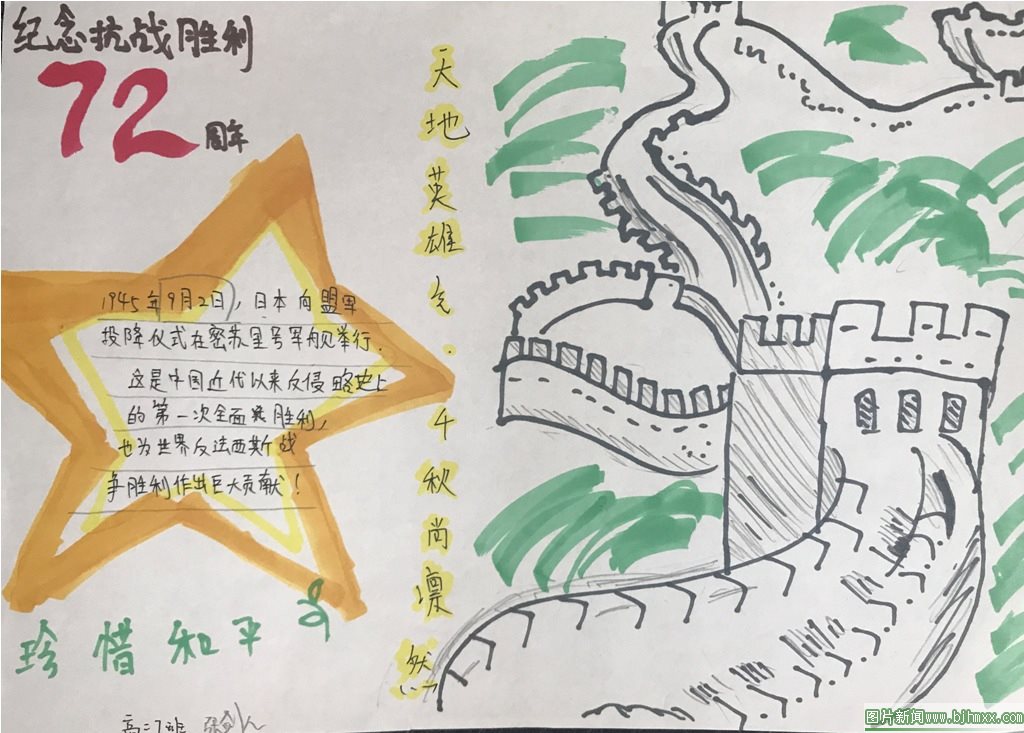 纪念抗战胜利
72
周年
1945年9月2日，日本向盟军
投降仪式在密苏里号军舰举行.
这是中国近代以来反侵略史上
的第一次全面 胜利，
也为世界反法西斯战
争胜利作出巨大贡献！
珍惜和平
高二7班
天地英雄气.千秋尚凛然
图片新闻www.bjhmxx.com